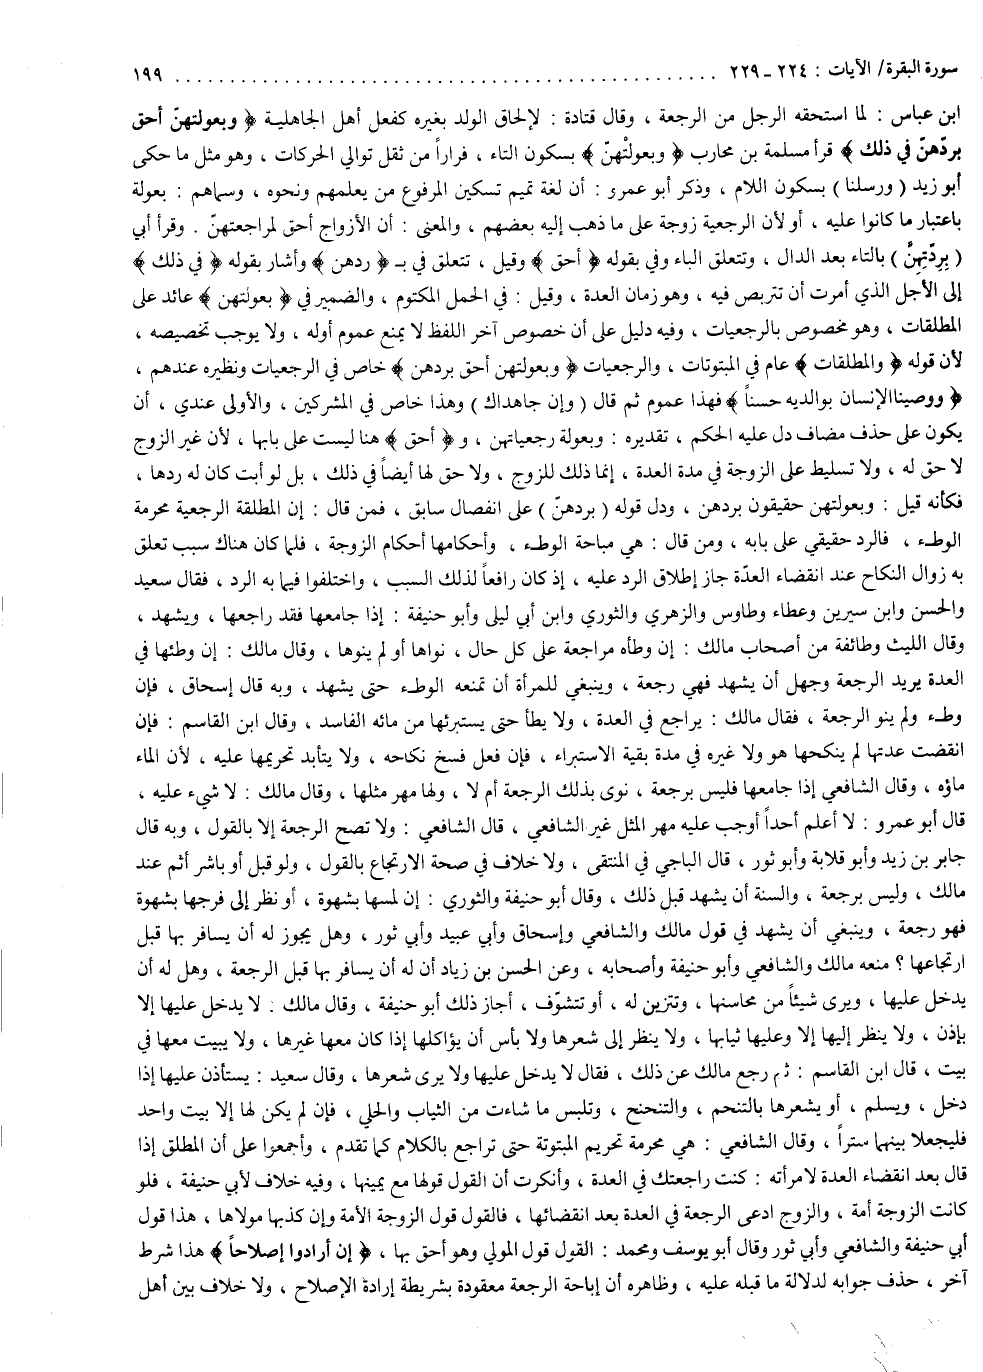 سورة البقرة/ الآيات : ٢٢٤ - ٢٢٩ ............................................................ ١٩٩
ابن عباس : لما استحقه الرجل من الرجعة ، وقال قتادة : لإلحاق الولد بغيره كفعل أهل الجاهلية ﴿ وبعولتهنّ أحق
بردّهنّ في ذلك ﴾ قرأ مسلمة بن محارب ﴿ وبعولتْهنّ ﴾ بسكون التاء ، فراراً من ثقل توالي الحركات ، وهو مثل ما حكى
أبو زيد ( ورسلنا ) بسكون اللام ، وذكر أبو عمرو : أن لغة تميم تسكين المرفوع من يعلمهم ونحوه ، وسماهم : بعولة
باعتبار ما كانوا عليه ، أو لأن الرجعية زوجة على ما ذهب إليه بعضهم ، والمعنى : أن الأزواج أحق لمراجعتهنّ . وقرأ أبي
( بِردّتِهِنَّ ) بالتاء بعد الدال ، وتتعلق الباء وفي بقوله ﴿ أحق ﴾ وقيل ، تتعلق في بـ ﴿ ردهن ﴾ وأشار بقوله ﴿ في ذلك ﴾
إلى الأجل الذي أمرت أن تتربص فيه ، وهو زمان العدة ، وقيل : في الحمل المكتوم ، والضمير في ﴿ بعولتهن ﴾ عائد على
المطلقات ، وهو مخصوص بالرجعيات ، وفيه دليل على أن خصوص آخر اللفظ لا يمنع عموم أوله ، ولا يوجب تخصيصه ،
لأن قوله ﴿ والمطلقات ﴾ عام في المبتوتات ، والرجعيات ﴿ وبعولتهن أحق بردهن ﴾ خاص في الرجعيات ونظيره عندهم ،
﴿ ووصينا الإنسان بوالديه حسناً ﴾ فهذا عموم ثم قال ( وإن جاهداك ) وهذا خاص في المشركين ، والأولى عندي ، أن
يكون على حذف مضاف دل عليه الحكم ، تقديره : وبعولة رجعياتهن ، و ﴿ أحق ﴾ هنا ليست على بابها ، لأن غير الزوج
لا حق له ، ولا تسليط على الزوجة في مدة العدة ، إنما ذلك للزوج ، ولا حق لها أيضاً في ذلك ، بل لو أبت كان له ردها ،
فكأنه قيل : وبعولتهن حقيقون بردهن ، ودل قوله ( بردهنّ ) على انفصال سابق ، فمن قال : إن المطلقة الرجعية محرمة
الوطء ، فالرد حقيقي على بابه ، ومن قال : هي مباحة الوطء ، وأحكامها أحكام الزوجة ، فلما كان هناك سبب تعلق
به زوال النكاح عند انقضاء العدّة جاز إطلاق الرد عليه ، إذ كان رافعاً لذلك السبب ، واختلفوا فيما به الرد ، فقال سعيد
والحسن وابن سيرين وعطاء وطاوس والزهري والثوري وابن أبي ليلى وأبو حنيفة : إذا جامعها فقد راجعها ، ويشهد ،
وقال الليث وطائفة من أصحاب مالك : إن وطأه مراجعة على كل حال ، نواها أو لم ينوها ، وقال مالك : إن وطئها في
العدة يريد الرجعة وجهل أن يشهد فهي رجعة ، وينبغي للمرأة أن تمنعه الوطء حتى يشهد ، وبه قال إسحاق ، فإن
وطء ولم ينو الرجعة ، فقال مالك : يراجع في العدة ، ولا يطأ حتى يستبرئها من مائه الفاسد ، وقال ابن القاسم : فإن
انقضت عدتها لم ينكحها هو ولا غيره في مدة بقية الاستبراء ، فإن فعل فسخ نكاحه ، ولا يتأبد تحريمها عليه ، لأن الماء
ماؤه ، وقال الشافعي إذا جامعها فليس برجعة ، نوى بذلك الرجعة أم لا ، ولها مهر مثلها ، وقال مالك : لا شيء عليه ،
قال أبو عمرو : لا أعلم أحداً أوجب عليه مهر المثل غير الشافعي ، قال الشافعي : ولا تصح الرجعة إلا بالقول ، وبه قال
جابر بن زيد وأبو قلابة وأبو ثور ، قال الباجي في المنتقى ، ولا خلاف في صحة الارتجاع بالقول ، ولو قبل أو باشر أثم عند
مالك ، وليس برجعة ، والسنة أن يشهد قبل ذلك ، وقال أبو حنيفة والثوري : إن لمسها بشهوة ، أو نظر إلى فرجها بشهوة
فهو رجعة ، وينبغي أن يشهد في قول مالك والشافعي وإسحاق وأبي عبيد وأبي ثور ، وهل يجوز له أن يسافر بها قبل
ارتجاعها ؟ منعه مالك والشافعي وأبو حنيفة وأصحابه ، وعن الحسن بن زياد أن له أن يسافر بها قبل الرجعة ، وهل له أن
يدخل عليها ، ويرى شيئاً من محاسنها ، وتتزين له ، أو تتشوّف ، أجاز ذلك أبو حنيفة ، وقال مالك : لا يدخل عليها إلا
بإذن ، ولا ينظر إليها إلا وعليها ثيابها ، ولا ينظر إلى شعرها ولا بأس أن يؤاكلها إذا كان معها غيرها ، ولا يبيت معها في
بيت ، قال ابن القاسم : ثم رجع مالك عن ذلك ، فقال لا يدخل عليها ولا يرى شعرها ، وقال سعيد : يستأذن عليها إذا
دخل ، ويسلم ، أو يشعرها بالتنحم ، والتنحنح ، وتلبس ما شاءت من الثياب والحلي ، فإن لم يكن لها إلا بيت واحد
فليجعلا بينهما ستراً ، وقال الشافعي : هي محرمة تحريم المبتوتة حتى تراجع بالكلام كما تقدم ، وأجمعوا على أن المطلق إذا
قال بعد انقضاء العدة لامرأته : كنت راجعتك في العدة ، وأنكرت أن القول قولها مع يمينها ، وفيه خلاف لأبي حنيفة ، فلو
كانت الزوجة أمة ، والزوج ادعى الرجعة في العدة بعد انقضائها ، فالقول قول الزوجة الأمة وإن كذبها مولاها ، هذا قول
أبي حنيفة والشافعي وأبي ثور وقال أبو يوسف ومحمد : القول قول المولي وهو أحق بها ، ﴿ إن أرادوا إصلاحاً ﴾ هذا شرط
آخر ، حذف جوابه لدلالة ما قبله عليه ، وظاهره أن إباحة الرجعة معقودة بشريطة إرادة الإصلاح ، ولا خلاف بين أهل